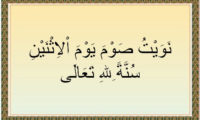 نَوَيْتُ صَوْمَ يَوْمَ اْلاِثْنَيْنِ
سُنَّةً ِللهِ تَعَالَى